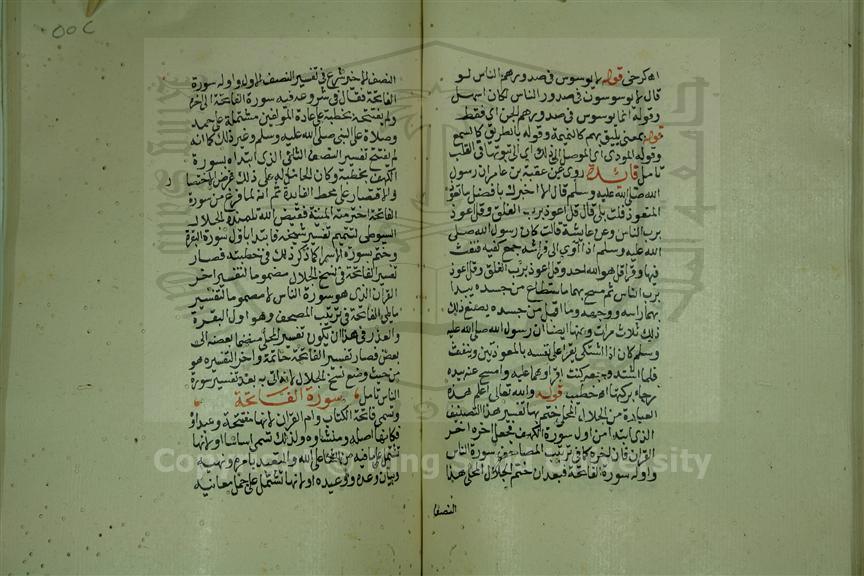 اه كرخي قوله لا يوسوس في صدورهم الناس لو
قال لا يوسوسون في صدور الناس لكان اسهل
وقوله انما يوسوس في صدورهم الجن اي فقط
قوله بمعنى يليق بهم كالنميمة وقوله بالطريق كالسمع
وقوله المودى اي الموصل الى ذلك اي الى ثبوتها في القلب
تامل فائدة روى عن عقبة بن عامر ان رسول
الله صلى الله عليه وسلم قال الا اخبرك بافضل ما تعوذ
المتعوذ قلت بلى قال قل اعوذ برب الفلق وقل اعوذ
برب الناس وعن عايشة قالت كان رسول الله صلى
الله عليه وسلم اذا آوى الى فراشه جمع كفيه فنفث
فيهما وقرا قل هو الله احد وقل اعوذ برب الفلق وقل اعوذ
برب الناس ثم مسح بهما ما استطاع من جسده يبدا
بهما راسه ووجهه وما اقبل من جسده يصنع ذلك
ذلك ثلاث مرات وعنها ايضا ان رسول الله صلى الله عليه
وسلم كان اذا اشتكى يقرا على نفسه بالمعوذتين وينفث
فلما اشتد وجعه كنت اقراوهما عليه وامسح عنه بيده
رجاء بركتها اه خطيب قوله والله تعالى اعلم هذه
العبارة من الجلال المحلى ختم بها تفسير هذا النصف
الذى ابتدا من اول سورة الكهف فجعل اخره اخر
القران فان اخره كما في ترتيب المصاحف سورة الناس
واوله سورة الفاتحة فبعد ان ختم الجلال المحلى هذا
النصف
النصف الاخير شرع في تفسير النصف الاول واوله سورة
الفاتحة فقال في شروعه فيه سورة الفاتحة الى اخره
ولم يفتتحه بخطبة على عادة المولفين مشتملة على حمد
وصلاة على النبي صلى الله عليه وسلم وغير ذلك كما انه
لم يفتتح تفسير النصف الثاني الذى ابتداه بسورة
الكهف بخطبة وكان الحامل له على ذلك غرض الاختصار
والاقتصار على محط الفايدة ثم انه لما فرغ من سورة
الفاتحة اخترمته المنية فقيض الله تلميذه الجلال
السيوطى لتتميم تفسير شيخه فابتدا باول سورة البقرة
وختم بسورة الاسرا كما ذكر ذلك في خطبته فصار
تفسير الفاتحة في نسخ الجلال مضموما لتفسير اخر
القران الذى هو سورة الناس لا مضموما لتفسير
ما يلى الفاتحة في ترتيب المصحف وهو اول البقرة
والعذر في هذا ان يكون تفسير المحلى منضما بعضه الى
بعض فصار تفسير الفاتحة خاتمة واخر التفسير هو
من حيث وضع نسخ الجلال لانه اتى به بعد تفسير سورة
الناس تامل سورة الفاتحة
وتسمى فاتحة الكتاب وام القران لانها مفتتحة ومبداؤه
فكانها اصله ومنشاوه ولذلك تسمى اساسا او لانها
تشتمل على ما فيه من الثنا على الله والتعبد بامره ونهيه
وبيان وعده ووعيده او لانها تشتمل على جمل معانيه